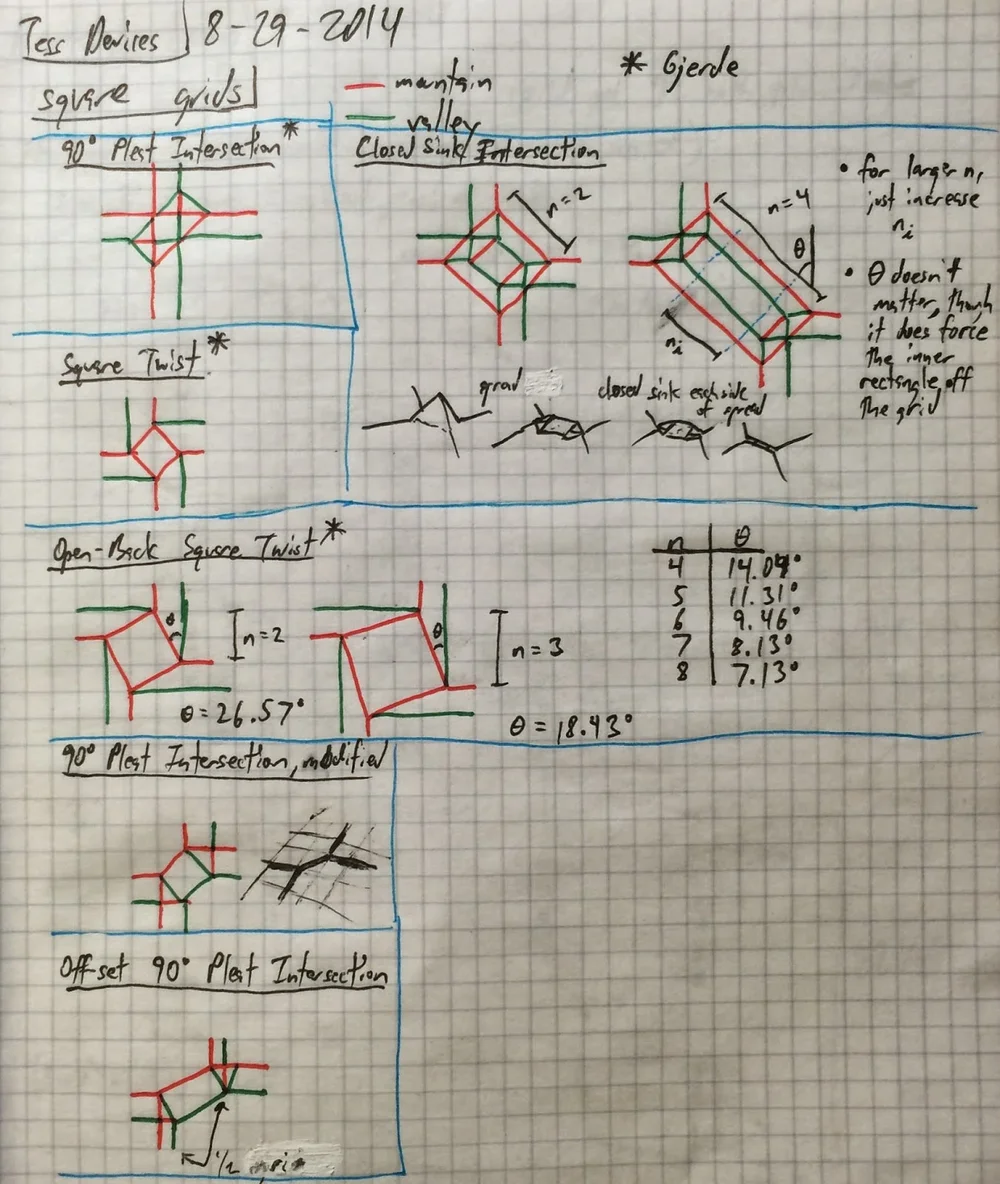 Tess Devices 8-29-2014
square grids
mountain
valley
* Gjerde
90° Pleat Intersection*
Closed Sink Intersection
n=2
n=4
θ
n_i
• for larger n,
just increase
n_i
• θ doesn't
matter, though
it does force
the inner
rectangle off
the grid
closed sink each side
of spread
Square Twist*
Open-Back Square Twist*
θ
n=2
θ = 26.57°
θ
n = 3
θ = 18.43°
n θ
4 14.04°
5 11.31°
6 9.46°
7 8.13°
8 7.13°
90° Pleat Intersection, modified
Off-set 90° Pleat Intersection
1/2